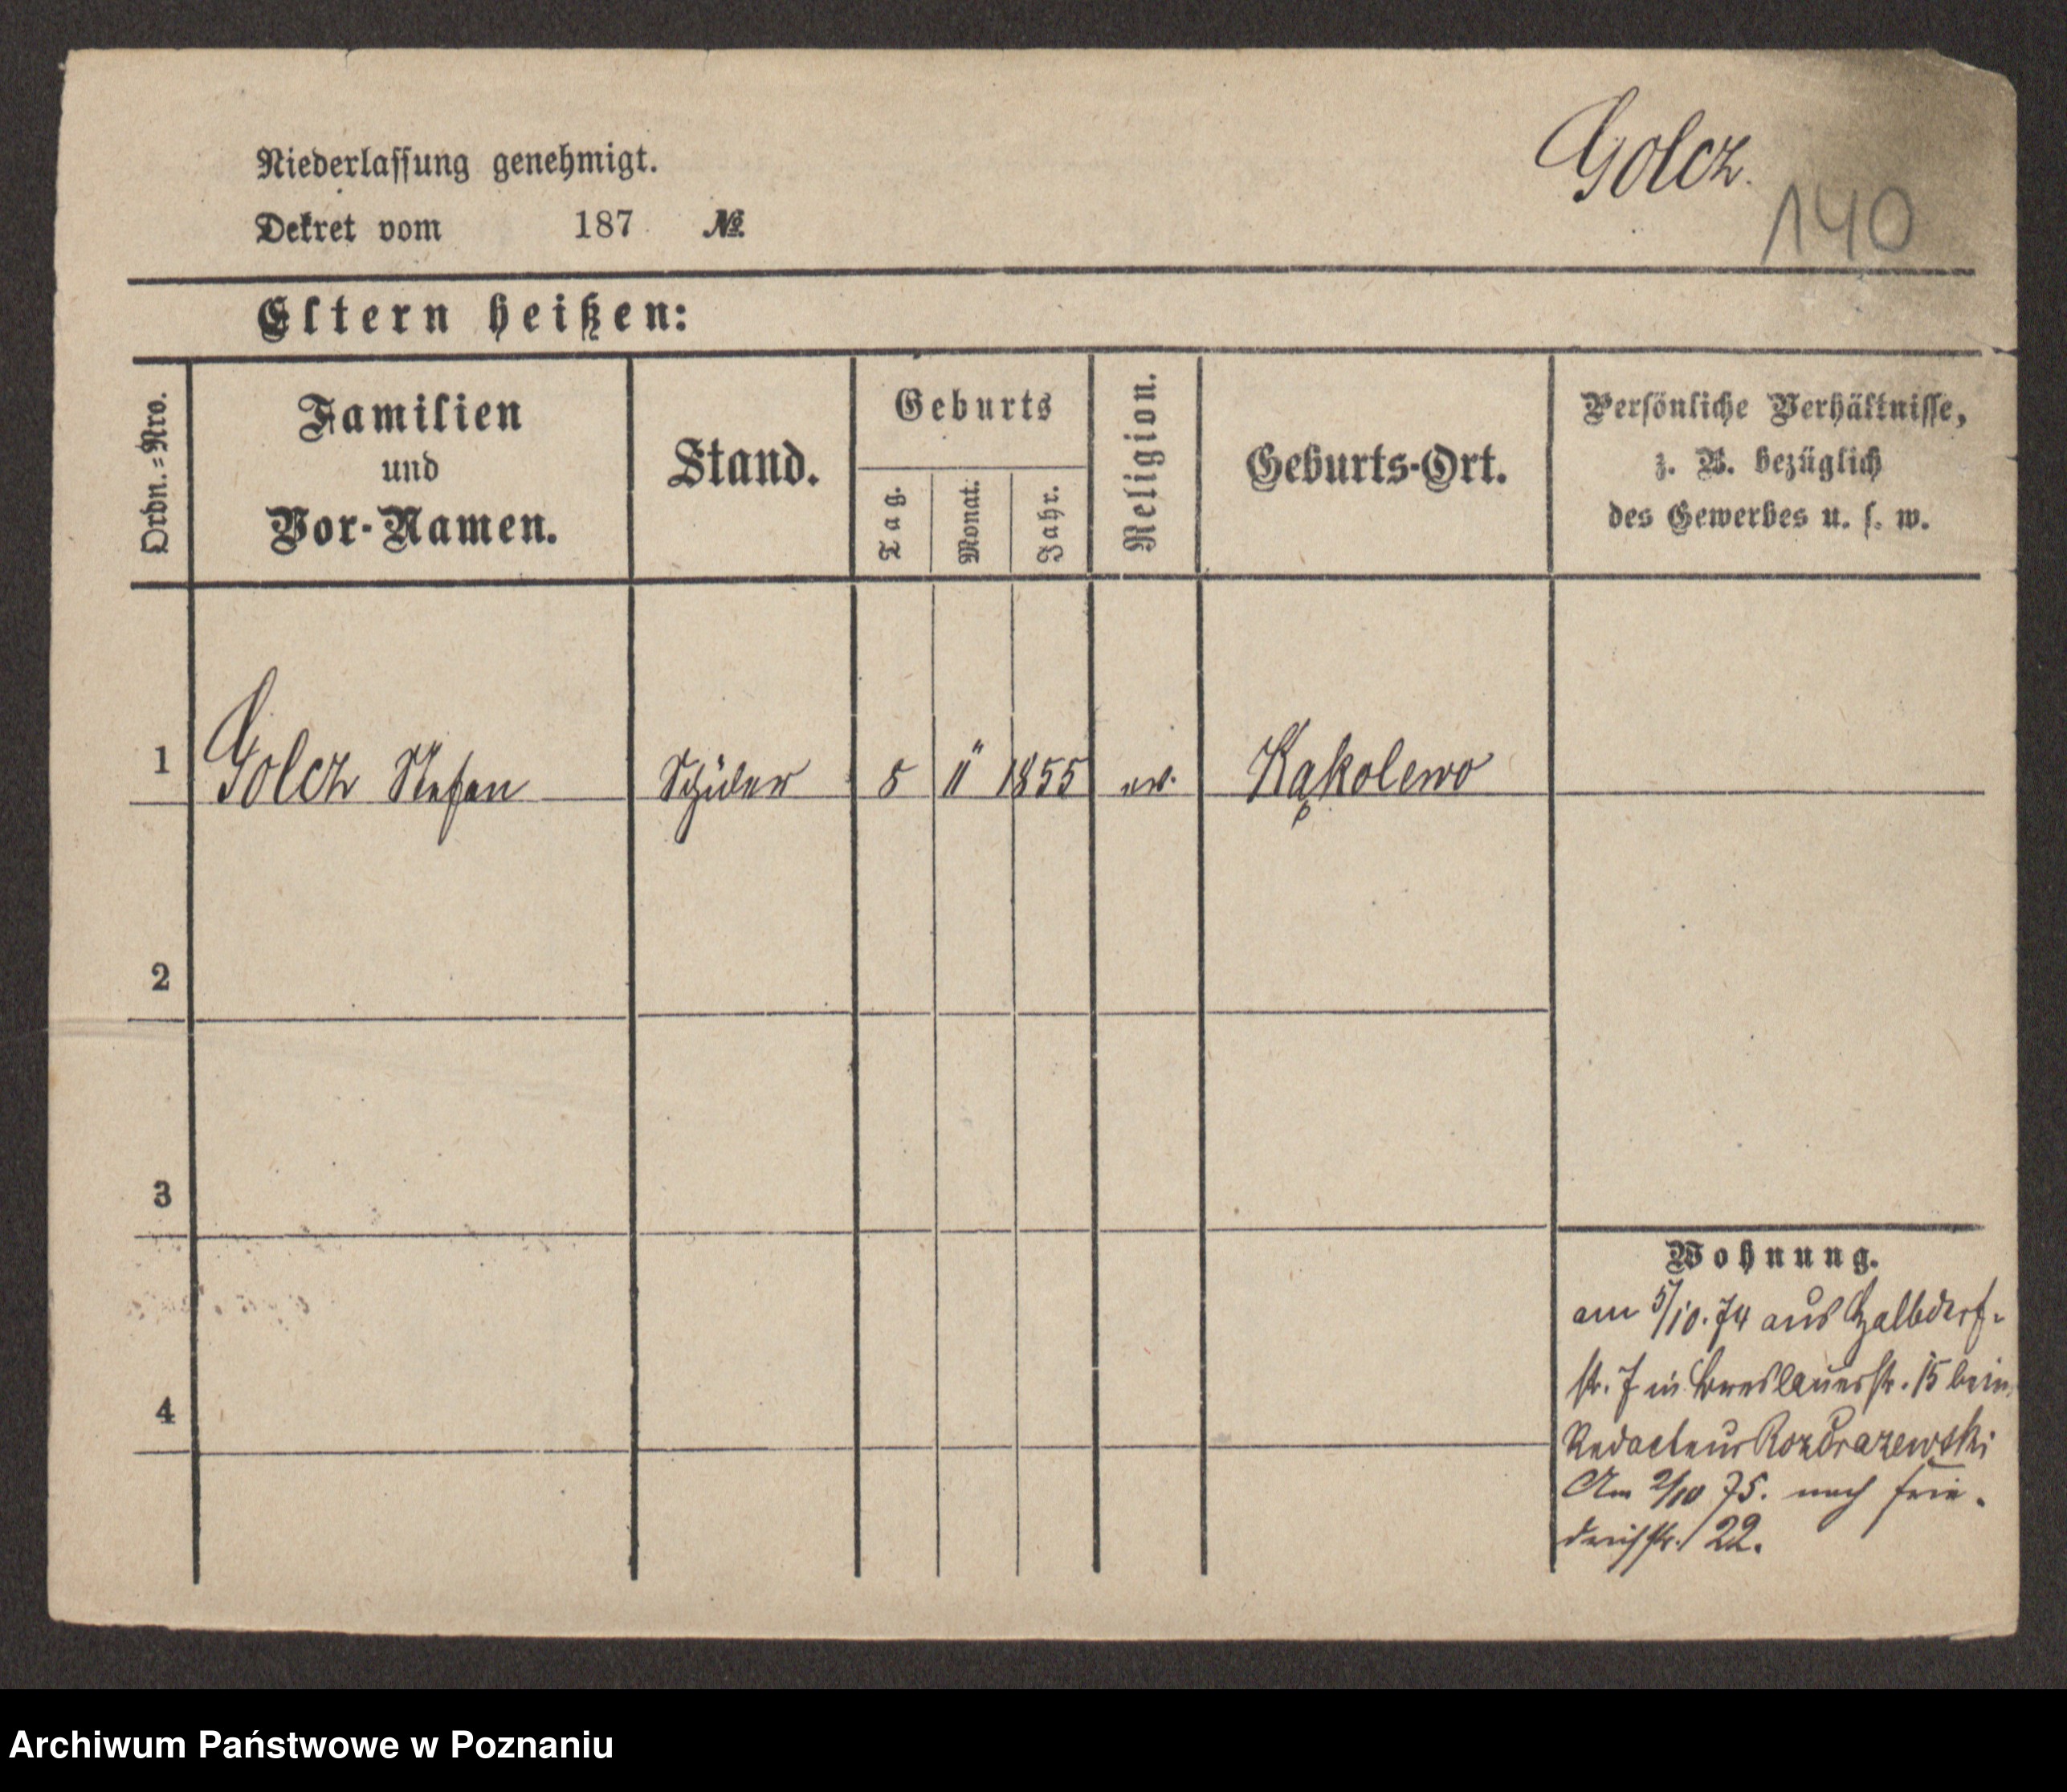 Golcz.
140
Niederlassung genehmigt.
Dekret vom 187 №
Eltern heißen:
Ordn.=Nro.
Familien
und
Vor-Namen.
Stand.
Geburts
Tag.
Monat.
Jahr.
Religion.
Geburts-Ort.
Persönliche Verhältnisse,
z. B. bezüglich
des Gewerbes u. s. w.
1 Golcz Stefan Schüler 5 11 1855 ev. Kąkolewo
2
3
4
Wohnung.
am 5/10. 74 aus Halbdorf-
str. 7 in Breslauerstr. 15 beim
Redacteur Rozdrazewski
Am 2/10 75. nach Frie-
drichstr. 22.
Archiwum Państwowe w Poznaniu